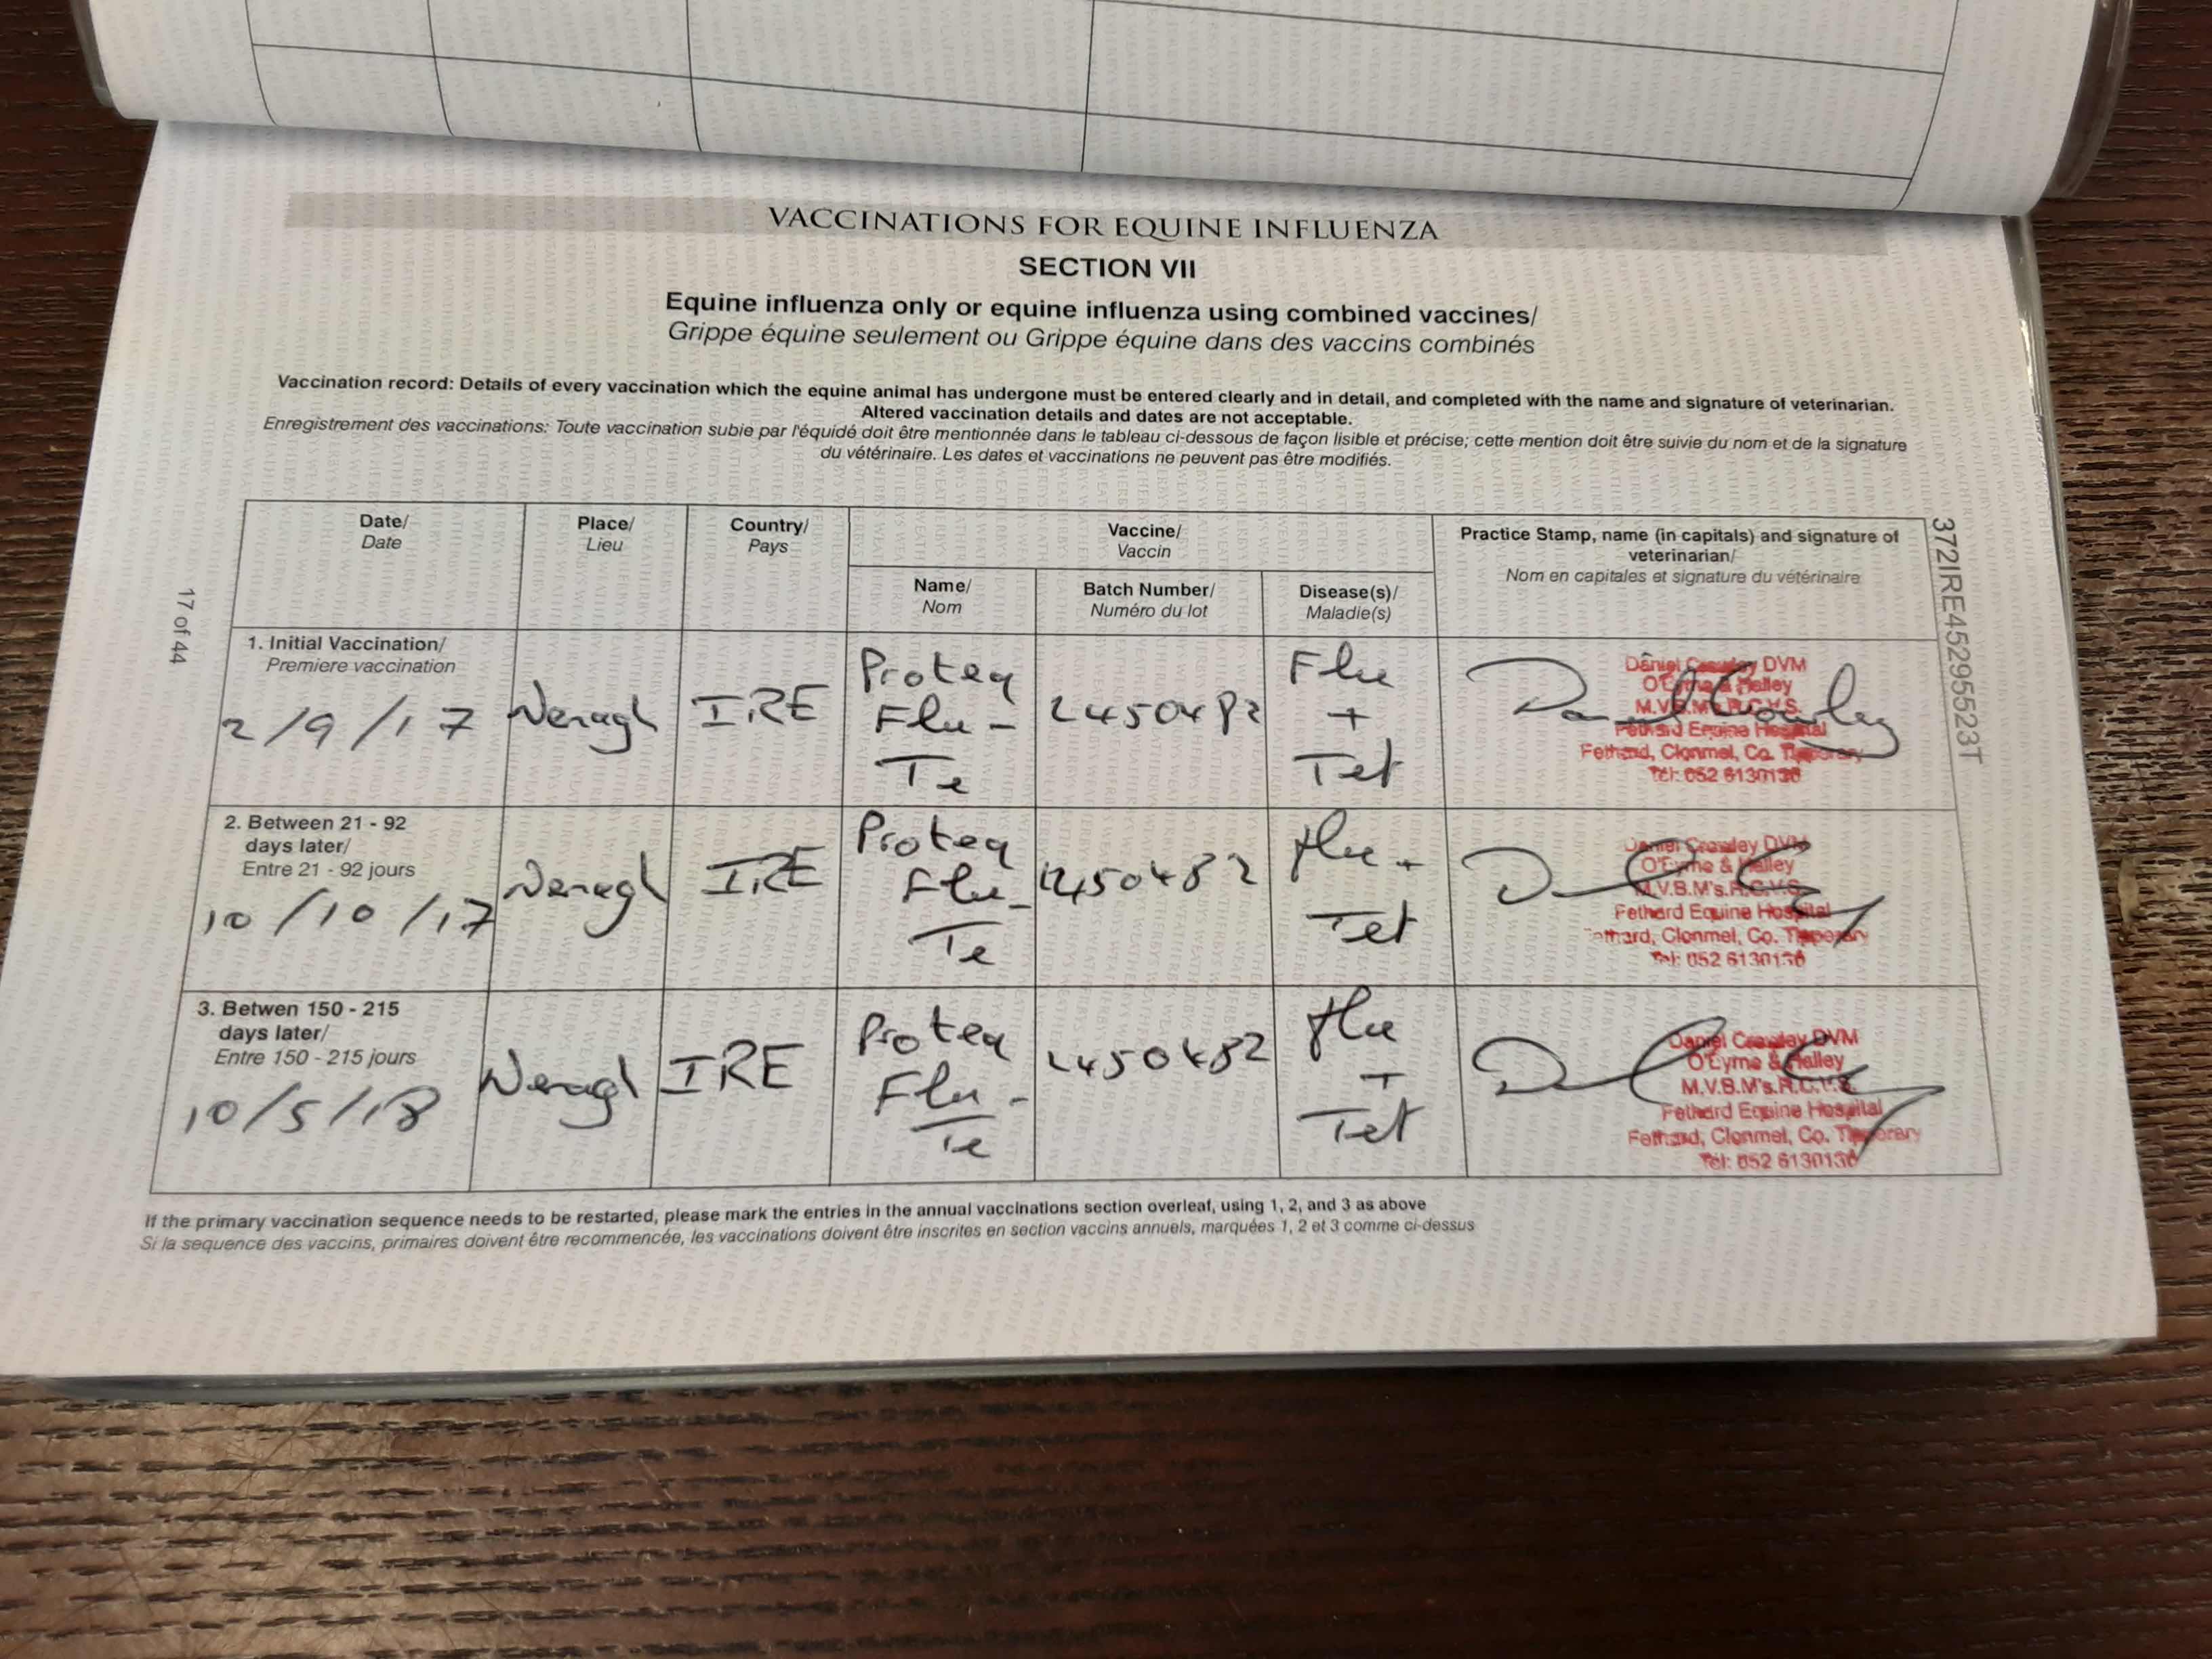 VACCINATIONS FOR EQUINE INFLUENZA
SECTION VII
Equine influenza only or equine influenza using combined vaccines/
Grippe équine seulement ou Grippe équine dans des vaccins combinés
Vaccination record: Details of every vaccination which the equine animal has undergone must be entered clearly and in detail, and completed with the name and signature of veterinarian.
Altered vaccination details and dates are not acceptable.
Enregistrement des vaccinations: Toute vaccination subie par l'équidé doit être mentionnée dans le tableau ci-dessous de façon lisible et précise; cette mention doit être suivie du nom et de la signature
du vétérinaire. Les dates et vaccinations ne peuvent pas être modifiés.
Date/
Date
Place/
Lieu
Country/
Pays
Vaccine/
Vaccin
Name/
Nom
Batch Number/
Numéro du lot
Disease(s)/
Maladie(s)
Practice Stamp, name (in capitals) and signature of
veterinarian/
Nom en capitales et signature du vétérinaire
1. Initial Vaccination/
Premiere vaccination
2/9/17
Nenagh
IRE
Proteq
Flu-
Te
2450482
Flu
+
Tet
Daniel Crowley DVM
O'Byrne & Halley
M.V.B.M's.R.C.V.S.
Fethard Equine Hospital
Fethard, Clonmel, Co. Tipperary
Tel: 052 6130136
2. Between 21 - 92
days later/
Entre 21 - 92 jours
10/10/17
Nenagh
IRE
Proteq
Flu-
Te
2450482
flu +
Tet
Daniel Crowley DVM
O'Byrne & Halley
M.V.B.M's.R.C.V.S.
Fethard Equine Hospital
Fethard, Clonmel, Co. Tipperary
Tel: 052 6130136
3. Betwen 150 - 215
days later/
Entre 150 - 215 jours
10/5/18
Nenagh
IRE
Proteq
Flu-
Te
2450482
flu
+
Tet
Daniel Crowley DVM
O'Byrne & Halley
M.V.B.M's.R.C.V.S.
Fethard Equine Hospital
Fethard, Clonmel, Co. Tipperary
Tel: 052 6130136
If the primary vaccination sequence needs to be restarted, please mark the entries in the annual vaccinations section overleaf, using 1, 2, and 3 as above
Si la sequence des vaccins, primaires doivent être recommencée, les vaccinations doivent être inscrites en section vaccins annuels, marquées 1, 2 et 3 comme ci-dessus
17 of 44
372IRE45295523T